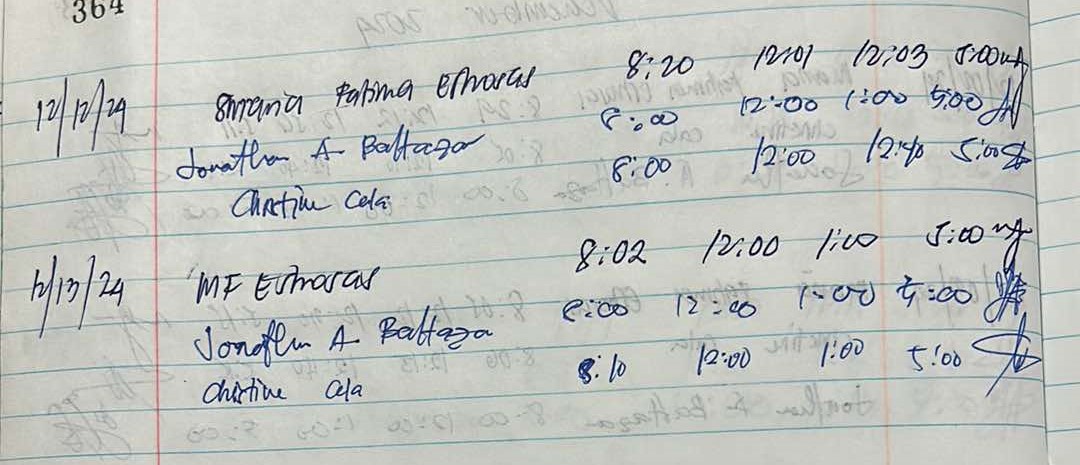 364
12/12/24 Fatima 8:20 12:01 12:03 5:00
Jonathan A Baltazar 8:00 12:00 1:00 5:00
Christine Cela 8:00 12:00 12:40 5:00
12/13/24 MF 8:02 12:00 1:00 5:00
Jonathan A Baltazar 8:00 12:00 1:00 5:00
Christine Cela 8:10 12:00 1:00 5:00